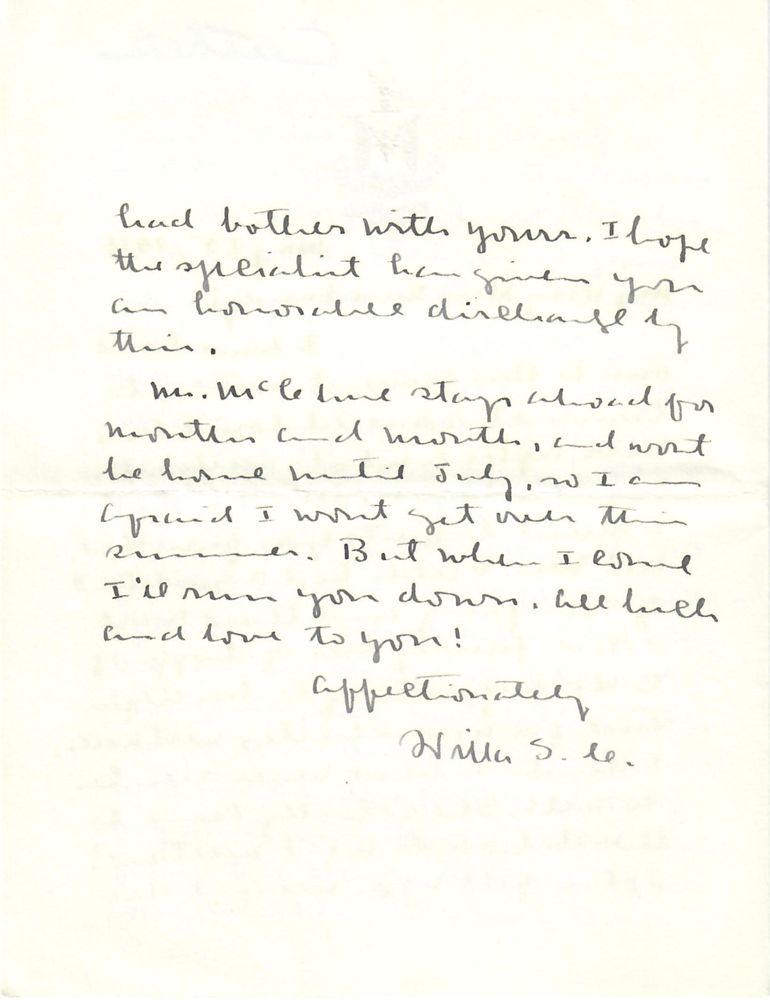 had bother with yours. I hope
the specialist has given you
an honorable discharge by
this.
Mr. McClure stays abroad for
months and months, and wont
be home until July, so I am
afraid I wont get over this
summer. But when I come
I'll run you down. All luck
and love to you!
Affectionately
Willa S. C.